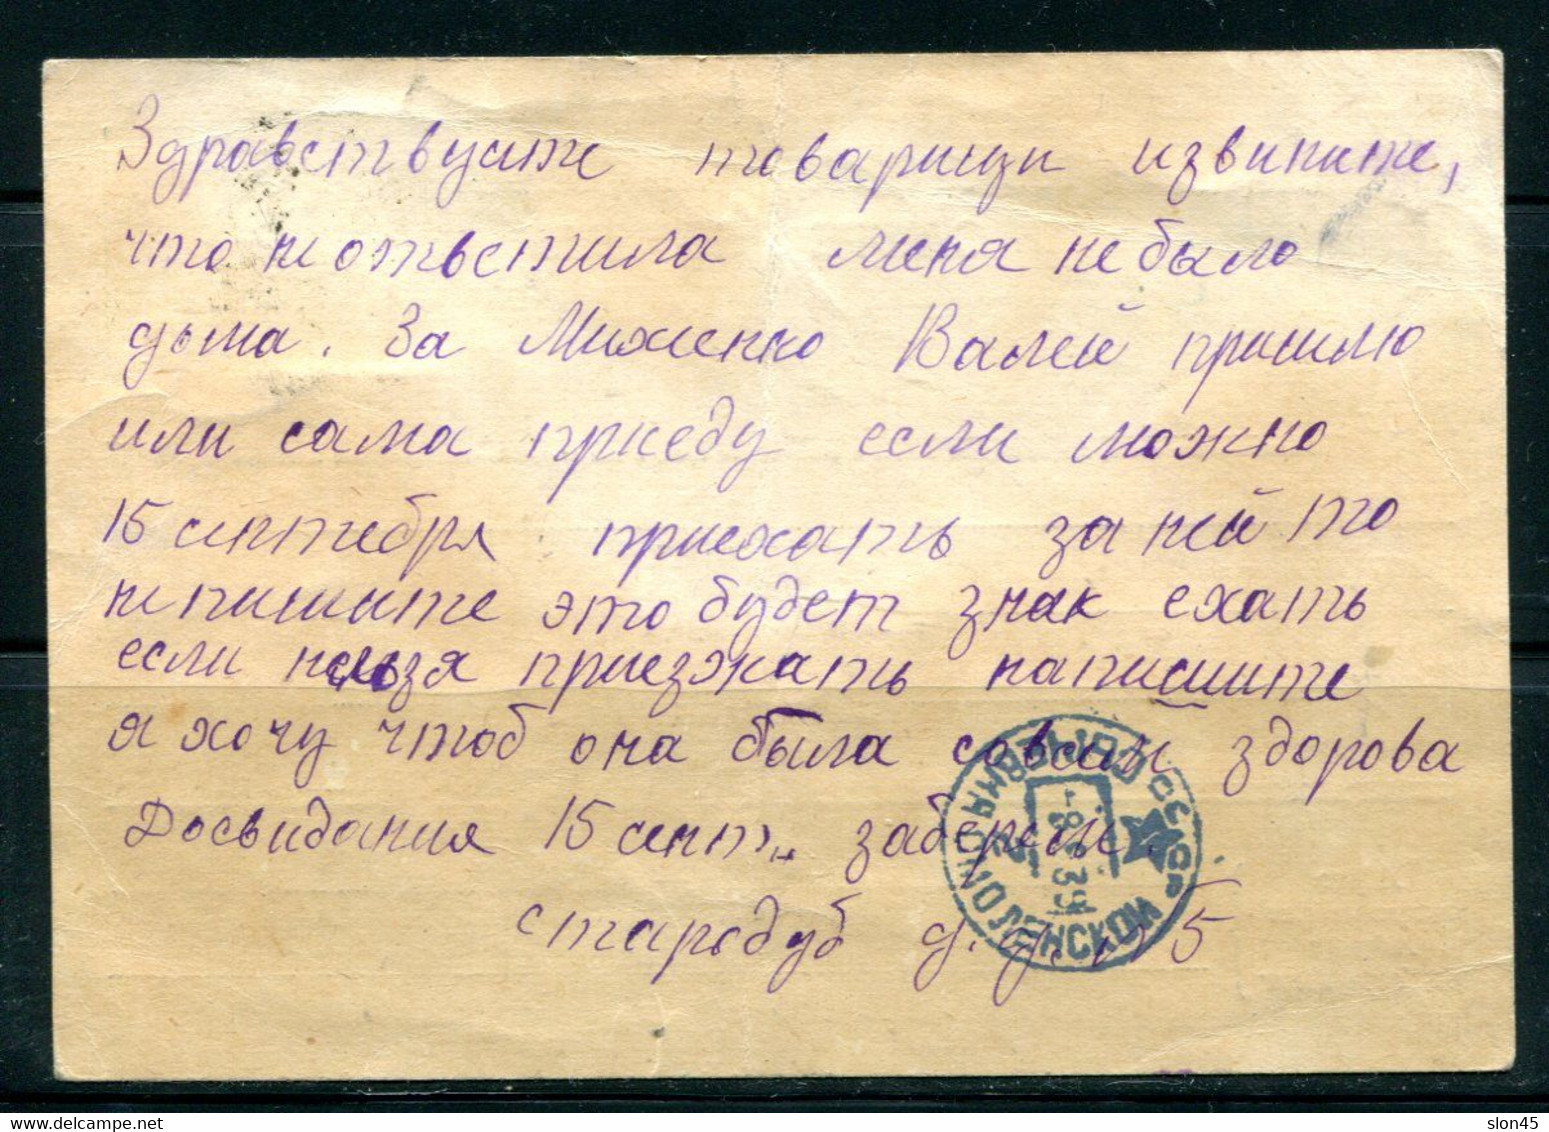 Здравствуите товарищи извините,
что не ответила меня не было
дома. За Михенко Валей пришлю
или сама приеду если можно
15 сентебря приехать за ней то
не пишите это будет знак ехать
если нельзя приезжать напишите
я хочу чтоб она была совсем здорова
Досвидания 15 сент. заберем.
стародуб д. д. №5
СССР
СМОЛЕНСКОЙ
slon45